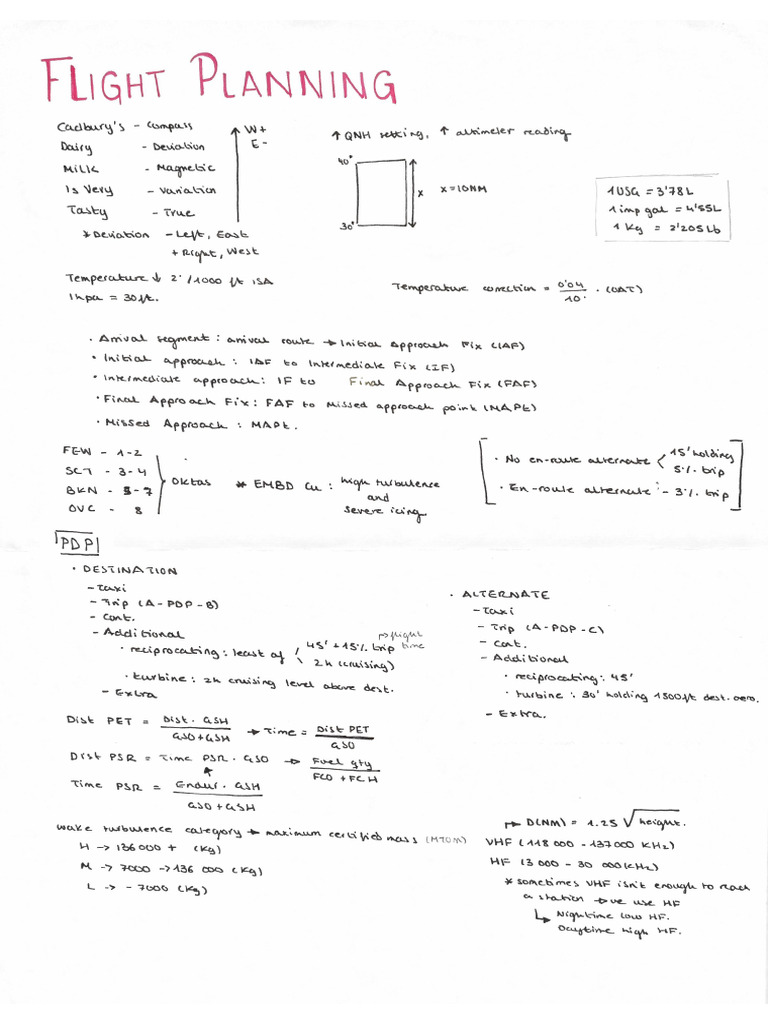 FLIGHT PLANNING
Cadbury's - Compass
Dairy - Deviation
Milk - Magnetic
Is Very - Variation
Tasty - True
W+
E-
* Deviation - Left, East
+ Right, West
↑ QNH setting, ↑ altimeter reading
40°
30°
x
x = 10NM
1 USG = 3'78 L
1 imp gal = 4'55L
1 Kg = 2'205 Lb
Temperature ↓ 2° / 1000 ft ISA
1 hpa = 30ft.
Temperature correction = 0'04 / 10° · (OAT)
· Arrival segment : arrival route → Initial Approach Fix (IAF)
· Initial approach : IAF to Intermediate Fix (IF)
· Intermediate approach : IF to Final Approach Fix (FAF)
· Final Approach Fix : FAF to Missed approach point (MAPt)
· Missed Approach : MAPt.
FEW - 1-2
SCT - 3-4
BKN - 5-7
OVC - 8
Oktas
* EMBD Cu : high turbulence
and
severe icing
· No en-route alternate < 15' holding
5% trip
· En-route alternate - 3% trip
PDP
· DESTINATION
- Taxi
- Trip (A-PDP-B)
- Cont.
- Additional
· reciprocating : least of / 45' + 15% trip → flight time
\ 2h (cruising)
· turbine : 2h cruising level above dest.
- Extra
· ALTERNATE
- Taxi
- Trip (A-PDP-C)
- Cont.
- Additional
· reciprocating : 45'
· turbine : 30' holding 1500ft dest. aero.
- Extra.
Dist PET = Dist. GSH / GSO + GSH → Time = Dist PET / GSO
Dist PSR = Time PSR · GSO → Fuel qty / FCO + FCH
Time PSR = Endur · GSH / GSO + GSH
Wake turbulence category → maximum certified mass (MTOM)
H → 136000 + (Kg)
M → 7000 → 136 000 (Kg)
L → - 7000 (Kg)
→ D(NM) = 1.25 √height.
VHF (118 000 - 137000 KHz)
HF (3 000 - 30 000 KHz)
* sometimes VHF isn't enough to reach
a station → we use HF
Nightime low HF.
Daytime high HF.